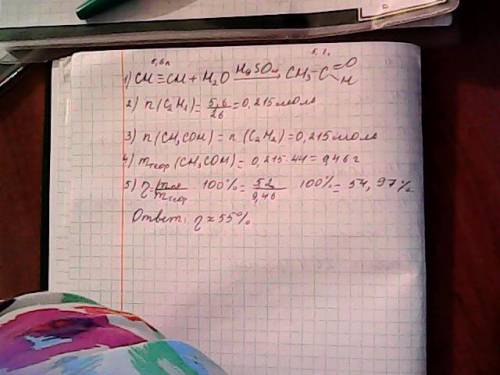 1) CH≡CH + H₂O HgSO₄ CH₃-C=O H
2) n(C₂H₂) = 5,6/26 = 0,215 моль
3) n(CH₃COH) = n(C₂H₂) = 0,215 моль
4) mтеор(CH₃COH) = 0,215·44 = 9,46 г
5) η = 100% = 5,2/9,46 100% = 54,97%
Ответ: η ≈ 55%